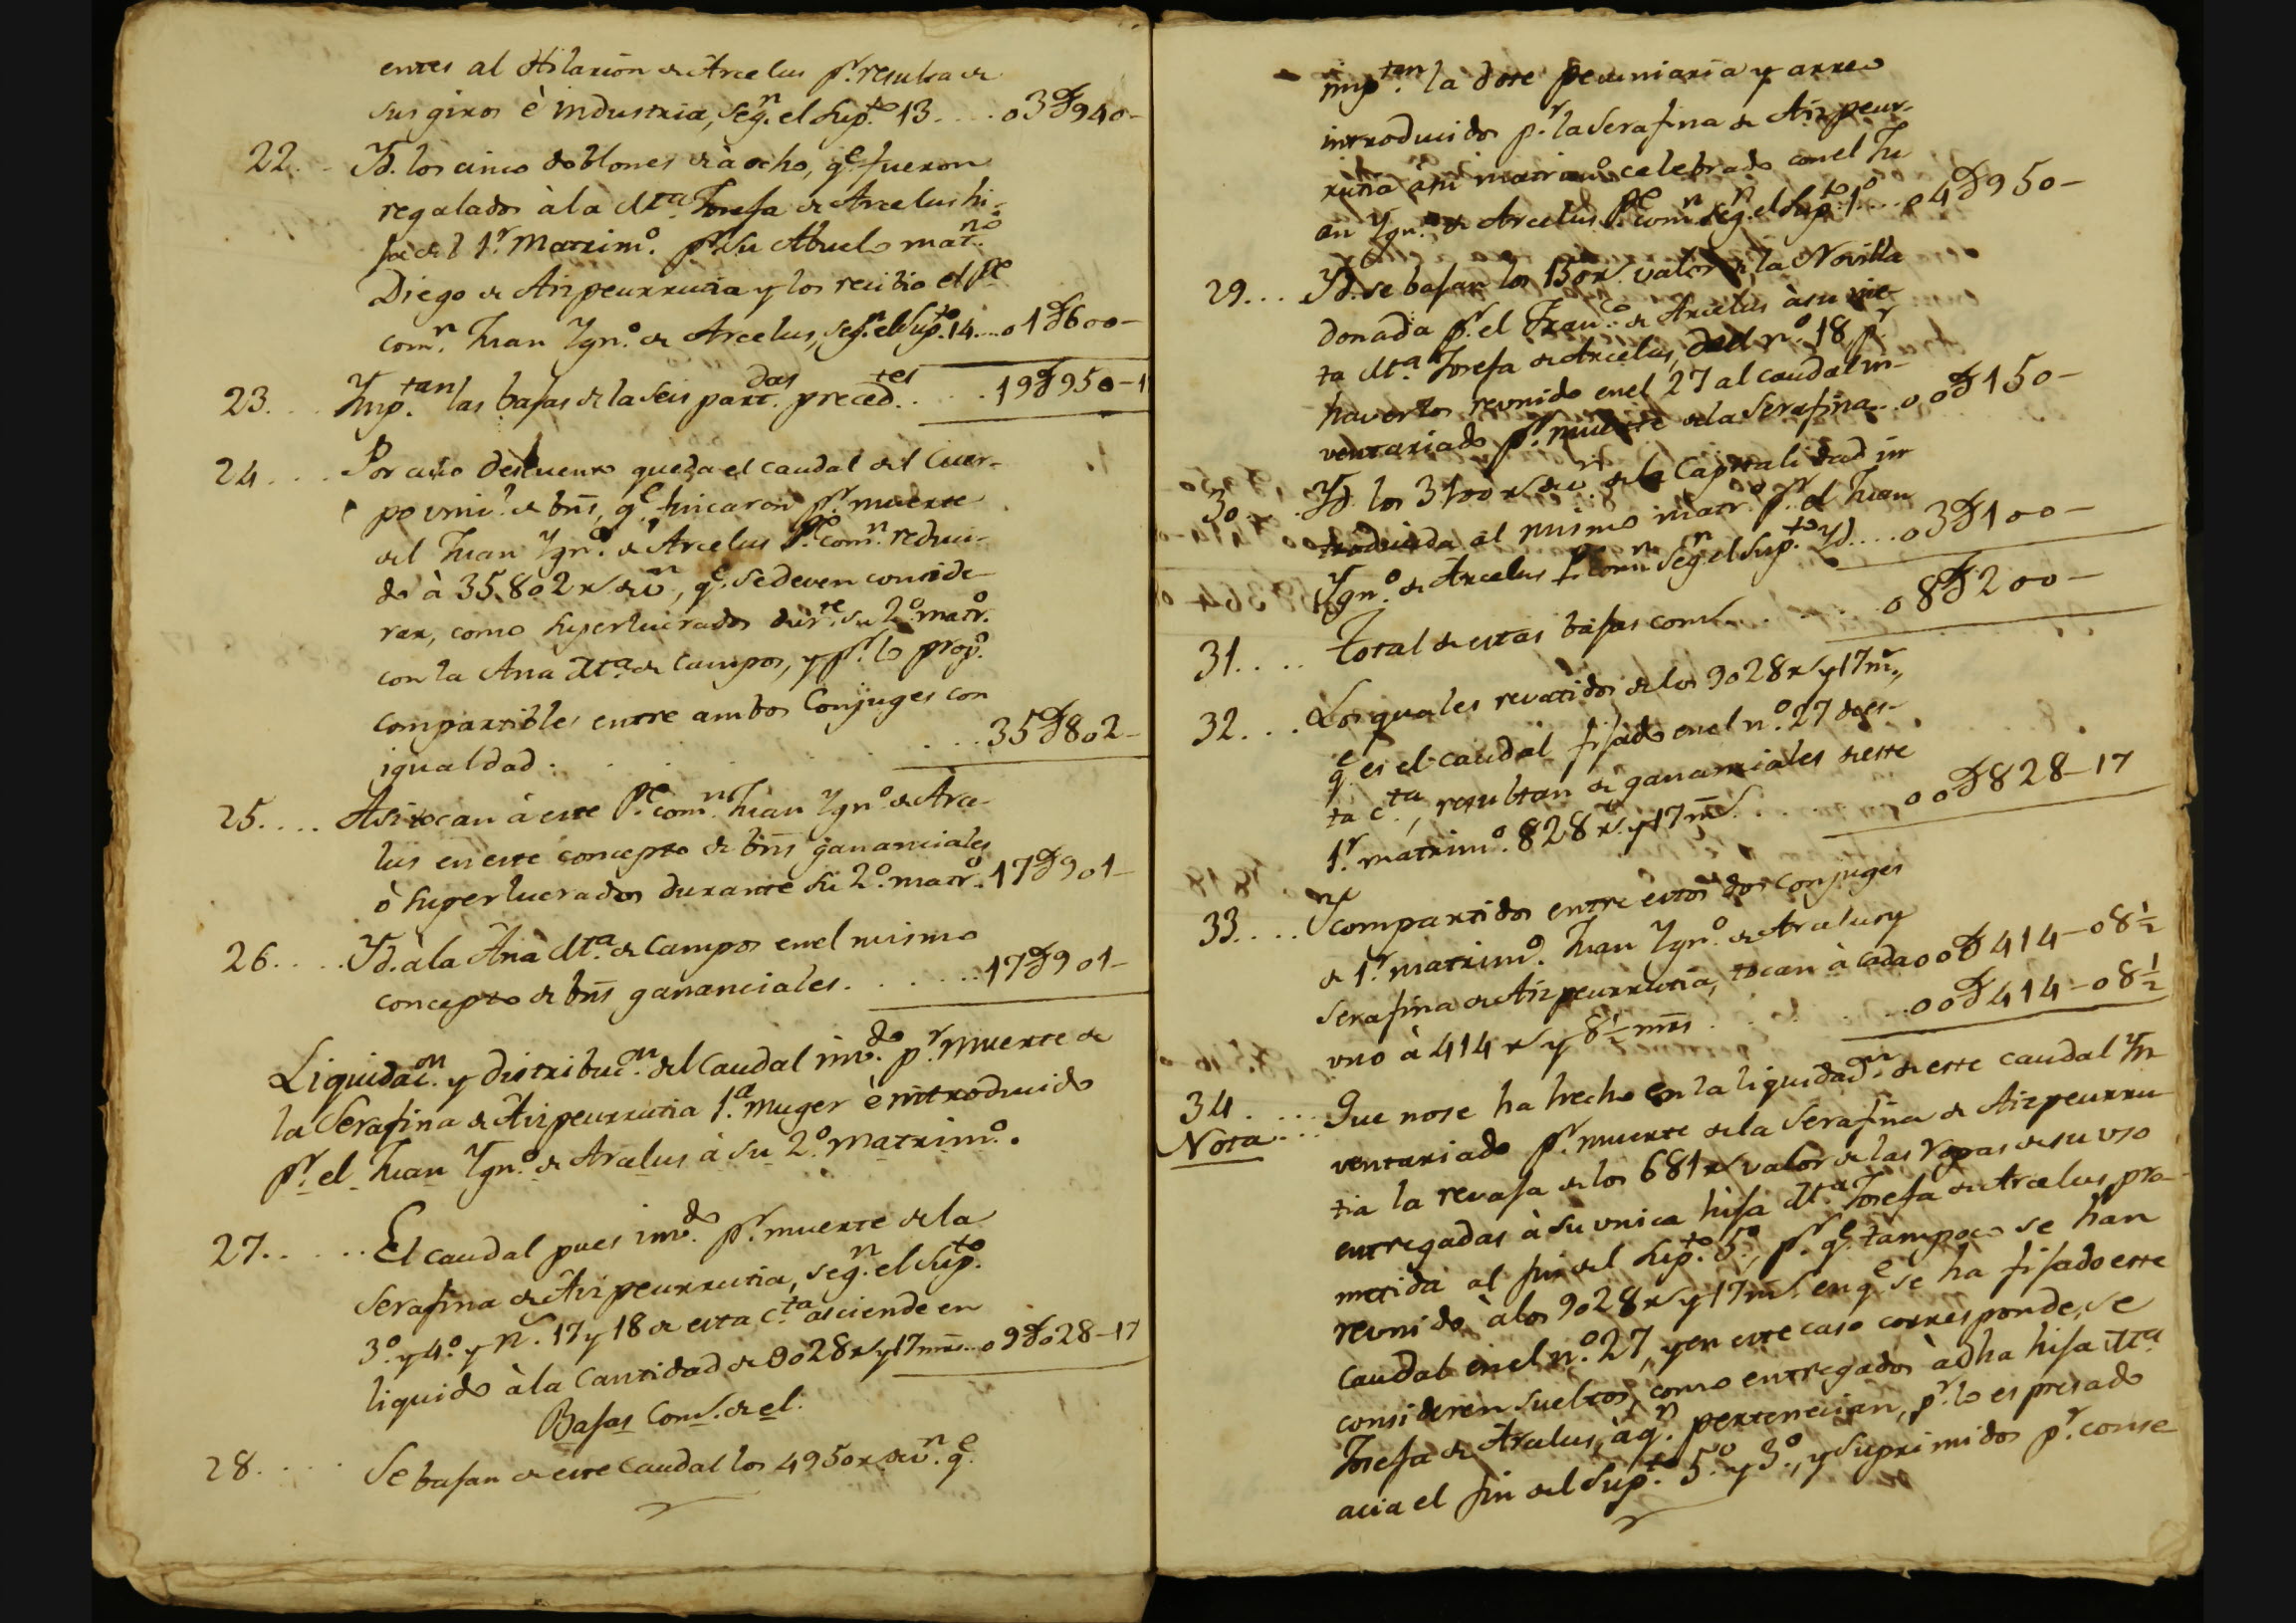 entes al Hilarion de Arcelus pr. resulta de
sus giros è industria, segn. el Supto. 13 . . . . 03D940-
22. . Yd. los cinco doblones de à ocho, qe. fueron
regalados à la Ma. Josefa de Arcelus hi-
ja del 1r. Matrimo. pr. su Abuelo matno.
Diego de Aizpeurrutia y los recibio el Pe.
comn. Juan Ygno. de Arcelus, segn. el Supto. 14 . . . 01D600-
23. . . Ymptan. las bajas de la seis partdas. precedtes. . . . 19D950-1
24 . . . . Por cuio descuento queda el caudal del Cuer-
po univl. de bns, qe. fincaron pr. muerte
del Juan Ygno. de Arcelus Pe. comn. reduci-
do à 35.802 rs de vn, qe. se deven conside-
rar, como superlucrados durte. su 2o. matro.
con la Ana Ma. de Campos, y pr. lo propo.
compartibles entre ambos Conjuges con
igualdad . . . . . . . 35D802-
25. . . . Asi tocan à este Pe. comn. Juan Ygno. de Arce-
lus en este concepto de bns gananciales
ò superlucrados durante su 2o. matro. 17D901-
26. . . . Yd. à la Ana Ma. de Campos en el mismo
concepto de bns gananciales. . . . . . 17D901-
Liquidacn. y distribucn. del Caudal invdo. pr. muerte de
la Serafina de Aizpeurrutia 1a. muger è introducido
pr. el Juan Ygno. de Arcelus à su 2o. matrimo.
27. . . . . El caudal pues invdo. pr. muerte de la
Serafina de Aizpeurrutia, segn. el Supto.
3o. y 4o. y n. 17 y 18 de esta cta. asciende en
liquido à la Cantidad de 9028 rs y 17 mrs. . 09D028-17
Bajas Coms. de el.
28. . . . Se bajan de este Caudal los 4950 rs. de vn. qe.
imptan. la dote pecuniaria y arreo
introducidos pr. la Serafina de Aizpeur-
rutia à su matrimo. celebrado con el Ju
an Ygno. de Arcelus Pe. comn. segn. el Supto. 1o. . . . 04D950-
29. . . Yd. se bajan los 150 rs. valor de la Novilla
donada pr. el Franco. de Arcelus à su nie-
ta Ma. Josefa de Arcelus, del no. 18, pr.
haverlos reunido en el 27 al caudal in-
ventariado pr. muerte de la Serafina. . 00D150-
30. . . . Yd. los 3100 rs de vn. de la Capitalidad in
troducida al mismo matro. pr. el Juan
Ygno. de Arcelus Pe. comn. segn. el Supto. Yd. . . . 03D100-
31. . . . Total de estas bajas coms. . . . . 08D200-
32. . . Los quales revatidos de los 9028 rs y 17 ms,
qe. es el caudal fijado en el no. 27 de es-
ta cta., resultan de gananciales de este
1r. matrimo. 828 rs. y 17 ms. . . . 00D828-17
33. . . . Y compartidos entre estos dos conjuges
de 1r. matrimo. Juan Ygno. de Arcelus y
Serafina de Aizpeurrutia, tocan à cada 00D414-08½
uno à 414 rs y 8½ mrs . . . . . 00D414-08½
34. . . . Que no se ha hecho en la liquidadn. de este caudal Yn
Nota . . . ventariado pr. muerte de la Serafina de Aizpeurru-
tia la revaja de los 681 rs valor de las Ropas de su uso
entregadas à su unica hija Ma. Josefa de Arcelus, pro-
metida al fin del Supto. 5o., pr. qe. tampoco se han
reunido à los 9028 rs y 17 ms. en qe. se ha fijado este
Caudal en el no. 27, y en este caso corresponde, se
consideren sueltos, como entregados à dha hija Ma.
Josefa de Arcelus, à qn. pertenecian, pr. lo espresado
acia el fin del Supto. 5o. y 3o., y suprimidos pr. conse